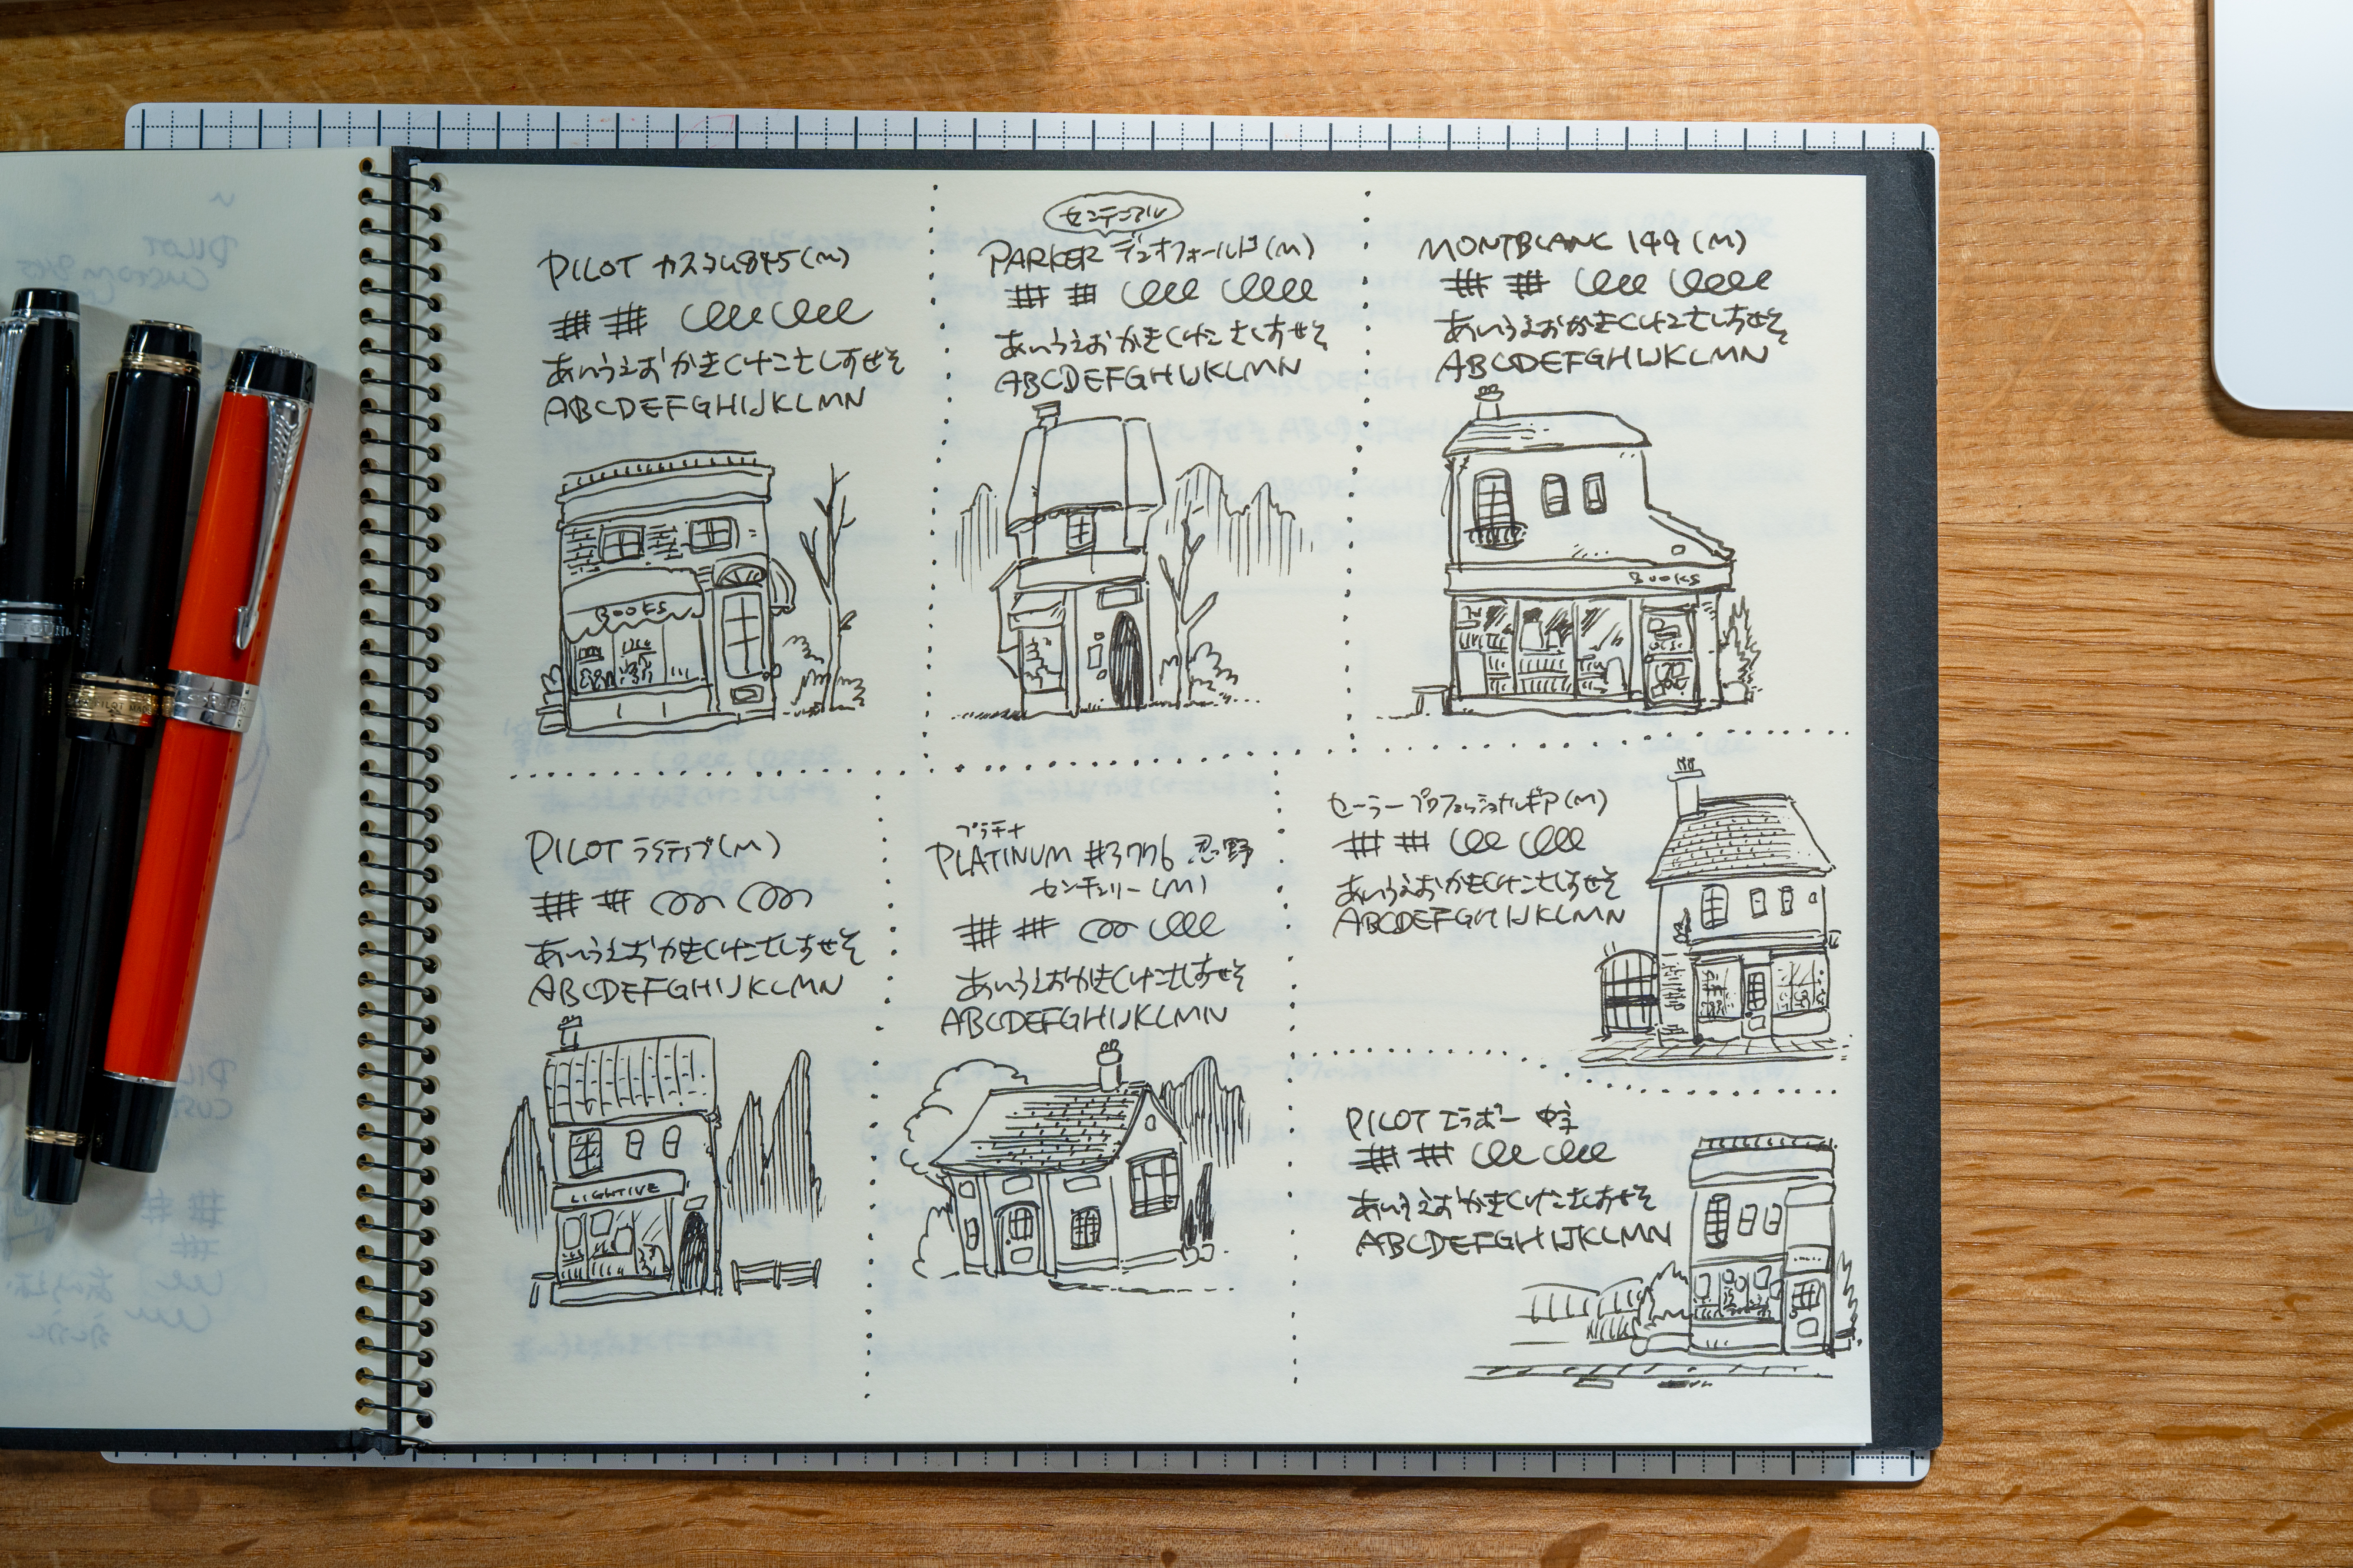 PILOT カスタム845(M)
## ## elee elee
あいうえおかきくけこさしすせそ
ABCDEFGHIJKLMN
BOOKS
センテニアル
PARKER デュオフォールド(M)
## ## elee eleee
あいうえおかきくけこさしすせそ
ABCDEFGHIJKLMN
MONTBLANC 149(M)
## ## elee eleee
あいうえおかきくけこさしすせそ
ABCDEFGHIJKLMN
BOOKS
PILOT ライティブ(M)
## ##
あいうえおかきくけこさしすせそ
ABCDEFGHIJKLMN
LIGHTIVE
プラチナ
PLATINUM #3776 忍野
センチュリー(M)
## ##
あいうえおかきくけこさしすせそ
ABCDEFGHIJKLMN
セーラー プロフェッショナルギア(M)
## ## elee elee
あいうえおかきくけこさしすせそ
ABCDEFGHIJKLMN
PILOT エラボー 中字
## ## elee elee
あいうえおかきくけこさしすせそ
ABCDEFGHIJKLMN